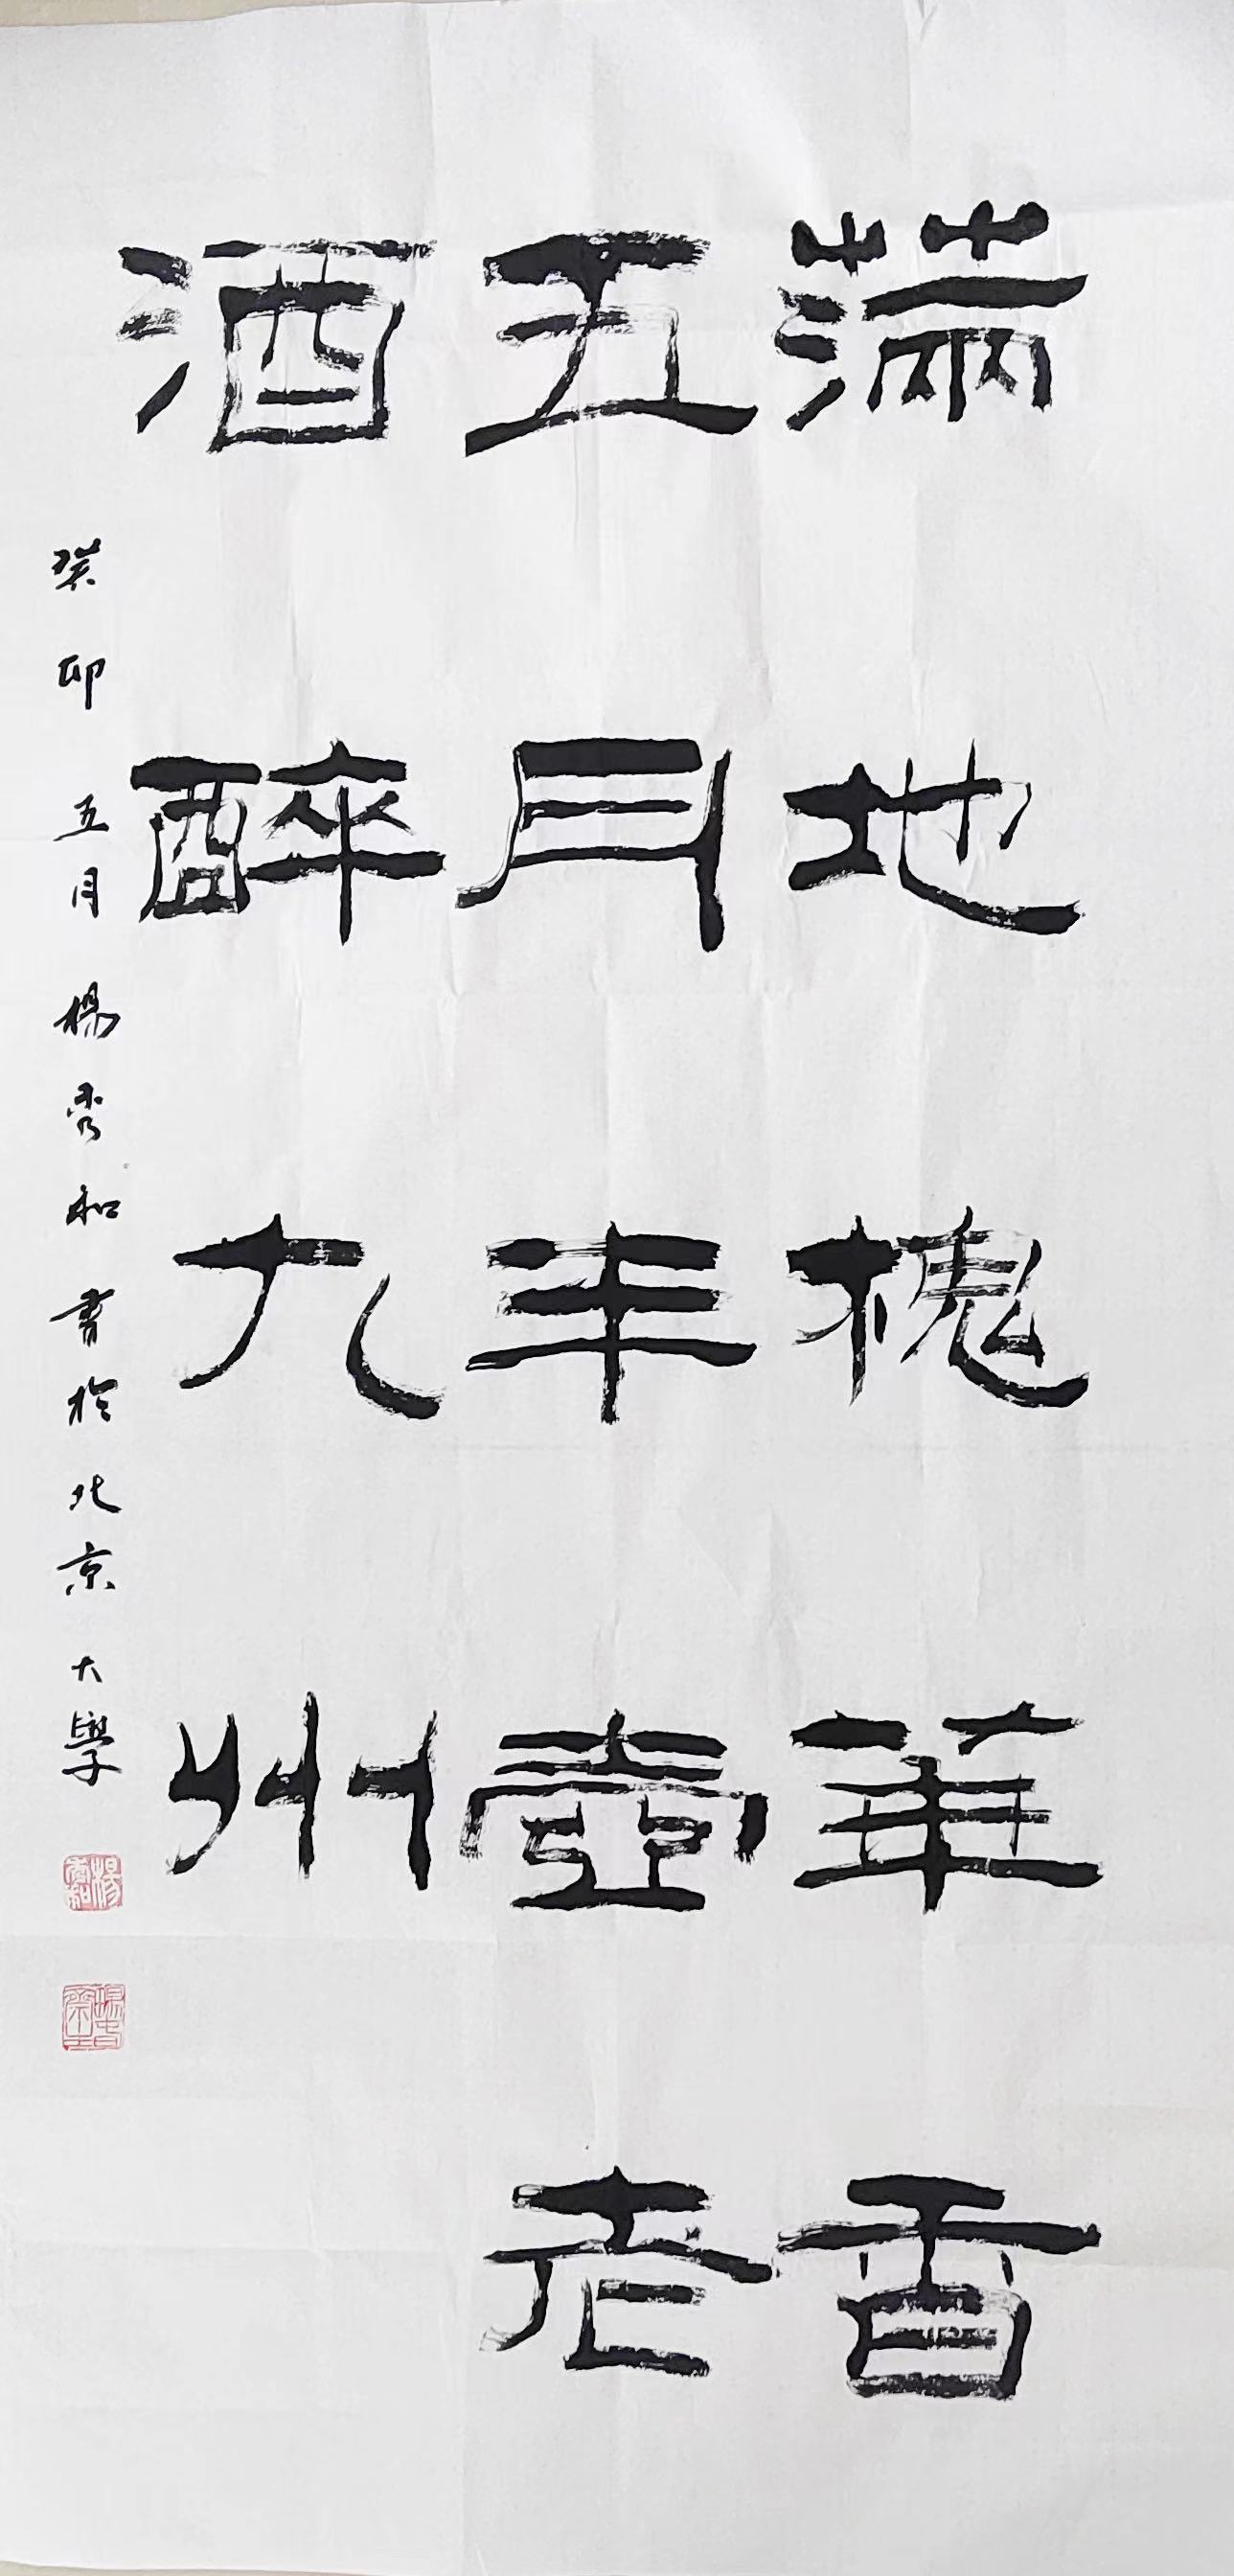 滿地槐華香
五月年壺老
酒醉九州
癸卯五月楊秀和書於北京大學
楊秀和